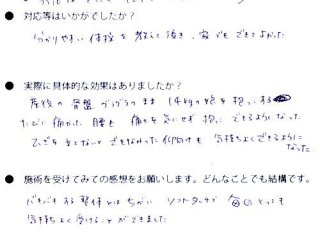 ● 対応等はいかがでしたか？
分かりやすい体操を教えて頂き、家でもできてよかった
● 実際に具体的な効果はありましたか？
産後の骨盤グラグラのまま14kgの娘を抱っこする
たびに痛かった腰も痛みを気にせず抱っこできるようになった
ひざを立てないとできなかった仰向けも気持ちよくできるように
なった
● 施術を受けてみての感想をお願いします。どんなことでも結構です。
バキバキする整体とはちがいソフトタッチで毎回とっても
気持ちよく受けることができました